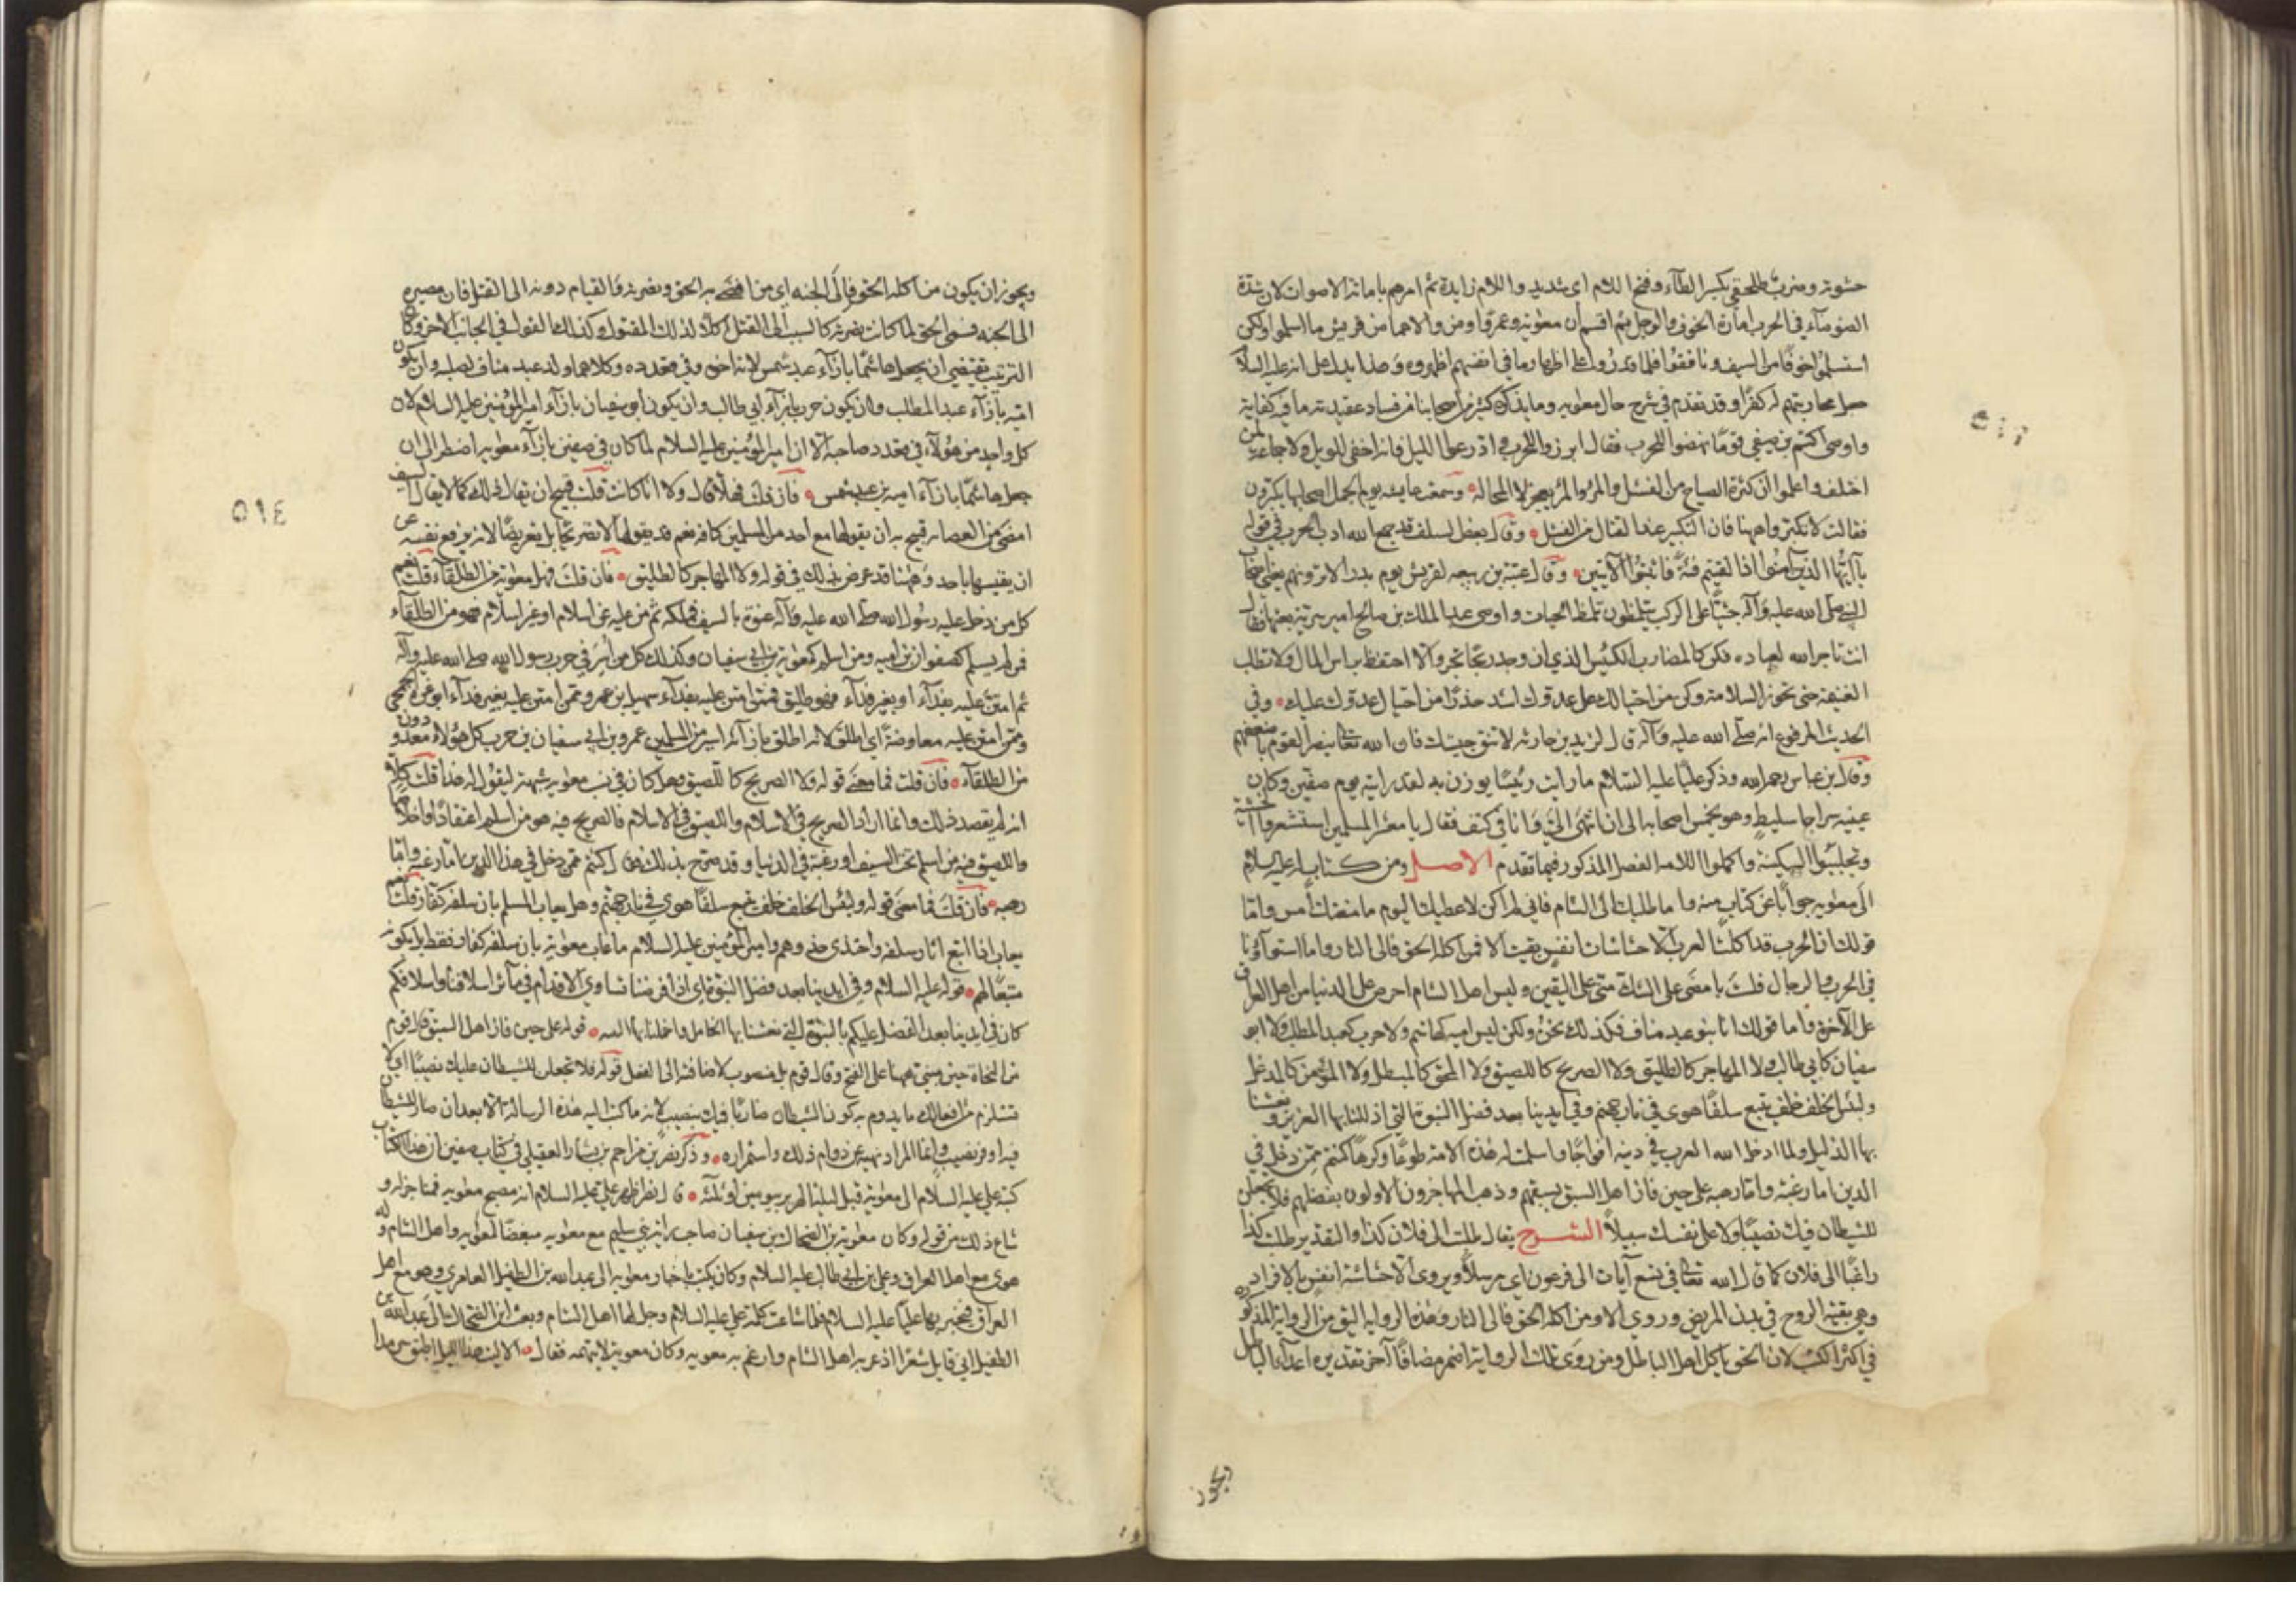 حشوته وضرب طلحفي بكسر الطآء وفتح اللام اي شديد واللام زايدة ثم امرهم باماتة الاصوات لان شدة
الضوضآء في الحرب امارة الخوف والوجل ثم اقسم ان معوية وعمرًوا ومن والاهما من قريش ما اسلموا ولكن
استسلموا خوفًا من السيف ونافقوا فلما قدروا على اظهار ما في انفسهم اظهروه وهذا يدل على انه عليه السلام
جعل محاربتهم له كفرًا وقد تقدم في شرح حال معويه وما يذكره كثير من اصحابنا من فساد عقيدته ما فيه كفاية
واوصى اكثم بن صيفي قومًا نهضوا للحرب فقال ابرزوا للحرب وادرعوا الليل فانه اخفى للويل ولا جماعة لمن
اختلف واعلموا ان كثرة الصياح من الفشل والمرؤ يعجز لا المحالة وسمعت عايشه يوم الجمل اصحابها يكبرون
فقالت لا تكثروا ههنا فان التكبير عند القتال من الفشل وقال بعض السلف قد جمع الله ادب الحرب في قوله
يا ايها الذين آمنوا اذا لقيتم فئة فاثبتوا الآيتين وقال عتبة بن ربيعه لقريش يوم بدر الا ترونهم يعني اصحاب
النبي صلى الله عليه وآله جثيًا على الركب يتلمظون تلمظ الحيات واوصى عبد الملك بن صالح امير سرية بعثها فقال
انت تاجر الله لعباده فكن كالمضارب الكيس الذي ان وجد ربحًا تجر والا احتفظ براس المال ولا تطلب
الغنيمة حتى تحوز السلامة وكن من احتيالك على عدوك اشد حذرًا من احتيال عدوك عليك وفي
الحديث المرفوع انه صلى الله عليه وآله قال لزيد بن حارثه لا تشق جيشك فان الله تعالى ينصر القوم باضعفهم
وقال ابن عباس رحمه الله وذكر عليًا عليه السلام ما رايت رئيسًا يوزن به لقد رايته يوم صفين وكان
عينيه سراجا سليط وهو يحمس اصحابه الى ان انتهى الي وانا في كنف فقال يا معشر المسلمين استشعروا الخشية
وتجلببوا السكينة واكملوا اللامة الفصل المذكور فيما تقدم الاصل ومن كتاب له عليه السلام
الى معويه جوابًا عن كتاب منه واما طلبك الى الشام فاني لم اكن لاعطيك اليوم ما منعتك امس واما
قولك ان الحرب قد اكلت العرب الا حشاشات انفس بقيت الا فمن اكله الحق فالى النار واما استوآؤنا
في الحرب والرجال فلست بامضى على الشك مني على اليقين وليس اهل الشام احرص على الدنيا من اهل العراق
على الآخرة واما قولك انا بنو عبد مناف فكذلك نحن ولكن ليس امية كهاشم ولا حرب كعبد المطلب ولا ابو
سفيان كابي طالب ولا المهاجر كالطليق ولا الصريح كاللصيق ولا المحق كالمبطل ولا المؤمن كالمدغل
ولبئس الخلف خلف يتبع سلفًا هوى في نار جهنم وفي ايدينا بعد فضل النبوة التي اذللنا بها العزيز ونعشنا
بها الذليل ولما ادخل الله العرب في دينه افواجًا واسلمت له هذه الامة طوعًا وكرهًا كنتم ممن دخل في
الدين اما رغبة واما رهبه على حين فاز اهل السبق بسبقهم وذهب المهاجرون الاولون بفضلهم فلا تجعلن
للشيطان فيك نصيبًا ولا على نفسك سبيلًا الشرح يقال طلبت الى فلان كذا والتقدير طلبت كذا
راغبًا الى فلان كما قال الله تعالى في تسع آيات الى فرعون اي مرسلًا ويروى الا حشاشة انفس بالافراد
وهي بقية الروح في بدن المريض وروي الا ومن اكله الحق فالى النار وهذه الرواية اليق من الرواية المذكورة
في اكثر الكتب لان الحق ياكل اهل الباطل ومن روى تلك الرواية اضمر مضافًا آخر تقديره اعدآء الباطل
ويجوز
ويجوز ان يكون من اكله الحق فالى الجنه اي من افضى به الحق ونصرته والقيام دونه الى القتل فان مصيره
الى الجنه فسمى الحق لما كانت نصرته كالسبب الى القتل اكلًا لذلك المقتول وكذلك القول في الجانب الآخر وكان
الترتيب يقتضي ان يجعل هاشمًا بازآء عبد شمس لانه اخوه وفي قعدده وكلاهما ولد عبد مناف لصلبه وان يكون
امية بازآء عبد المطلب وان يكون حرب بازآء ابي طالب وان يكون ابو سفيان بازآء امير المؤمنين عليه السلام لان
كل واحد من هؤلآء في قعدد صاحبه الا ان امير المؤمنين عليه السلام لما كان في صفين بازآء معويه اضطر الى ان
جعل هاشمًا بازآء امية بن عبد شمس فان قلت فهلا قال ولا انا كانت قلت قبيح ان يقال ذلك كما لا يقال السيف
امضى من العصا بل قبيح به ان يقولها مع احد من المسلمين كافه نعم قد يقولها لا تصريحًا بل تعريضًا لانه يرفع نفسه عن
ان يقيسها باحد وههنا قد عرض بذلك في قوله ولا المهاجر كالطليق فان قلت فهل معوية من الطلقآء قلت نعم
كل من دخل عليه رسول الله صلى الله عليه وآله عنوة بالسيف فملكه ثم من عليه عن اسلام او غير اسلام فهو من الطلقآء
فمن لم يسلم كصفوان بن اميه ومن اسلم كمعوية بن ابي سفيان وكذلك كل من اسر في حرب رسول الله صلى الله عليه وآله
ثم امتن عليه بفدآء او بغير فدآء فهو طليق فممن امتن عليه بفدآء سهيل بن عمرو وممن امتن عليه بغير فدآء ابو عزة الجمحي
وممن امتن عليه معاوضة اي اطلق لانه اطلق بازآئه اسير من المسلمين عمرو بن ابي سفيان بن حرب كل هؤلاء معدودون
من الطلقآء فان قلت فما معنى قوله ولا الصريح كاللصيق وهل كان في نسب معويه شبهة ليقول له هذا قلت كلا
انه لم يقصد ذلك وانما اراد الصريح في الاسلام واللصيق في الاسلام فالصريح فيه هو من اسلم اعتقادًا واخلاصًا
واللصيق فيه من اسلم تحت السيف او رغبة في الدنيا وقد صرح بذلك فقال كنتم ممن دخل في هذا الدين اما رغبة واما
رهبه فان قلت فما معنى قوله ولبئس الخلف خلف يتبع سلفًا هوى في نار جهنم وهل يعاب المسلم بان سلفه كفار قلت نعم
يعاب اذا اتبع آثار سلفه واحتذى حذوهم وامير المؤمنين عليه السلام ما عاب معوية بان سلفه كفار فقط بل بكونه
متبعًا لهم قوله عليه السلام وفي ايدينا بعد فضل النبوة اي اذا فرضنا تساوي الاقدام في مآثر اسلافنا واسلافكم
كان في ايدينا بعد الفضل عليكم بالنبوة التي نعشنا بها الخامل واخملنا بها النبيه قوله على حين فاز اهل السبق قال قوم
من النحاة حين مبني ههنا على الفتح وقال قوم بل منصوب لاضافته الى الفعل قوله فلا تجعلن للشيطان عليك نصيبًا اي لا
تستلزم من افعالك ما يدوم به كون الشيطان ضاربًا فيك بنصيب لانه ما كتب اليه هذه الرسالة الا بعد ان صار للشيطان
فيه اوفر نصيب وانما المراد نهيه عن دوام ذلك واستمراره وذكر نصر بن مزاحم بن بشار العقيلي في كتاب صفين ان هذا الكتاب
كتبه علي عليه السلام الى معوية قبل ليلة الهرير بيومين او ثلثة قال نصر اظهر علي عليه السلام انه مصبح معويه فمناجزه و
شاع ذلك من قوله وكان معوية بن الضحاك بن سفيان صاحب راية بني سليم مع معويه مبغضًا لمعويه واهل الشام وله
هوى مع اهل العراق وعلي بن ابي طالب عليه السلام وكان يكتب باخبار معويه الى عبد الله بن الطفيل العامري وهو مع اهل
العراق فيخبر بها عليًا عليه السلام فلما شاعت كلمة علي عليه السلام وجل لها اهل الشام وبعث ابن الضحاك الى عبد الله بن
الطفيل اني قايل شعرًا اذعر به اهل الشام وارغم به معويه وكان معوية لا يتهمه فقال الا ليت هذا الليل اطبق سرمدا
٥١٤